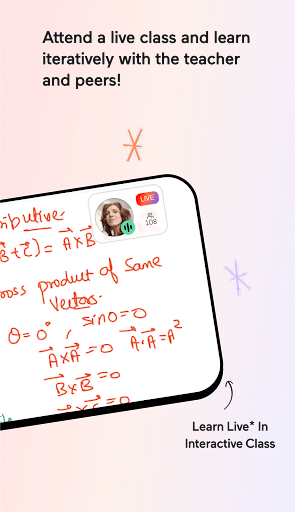 Attend a live class and learn
iteratively with the teacher
and peers!
LIVE
108
ibutive
B+C) = A×B
oss product of Same
Vectors.
θ=0°, sin0=0
A×A=0 A·A=A²
B×B=0
=0
Learn Live* In
Interactive Class